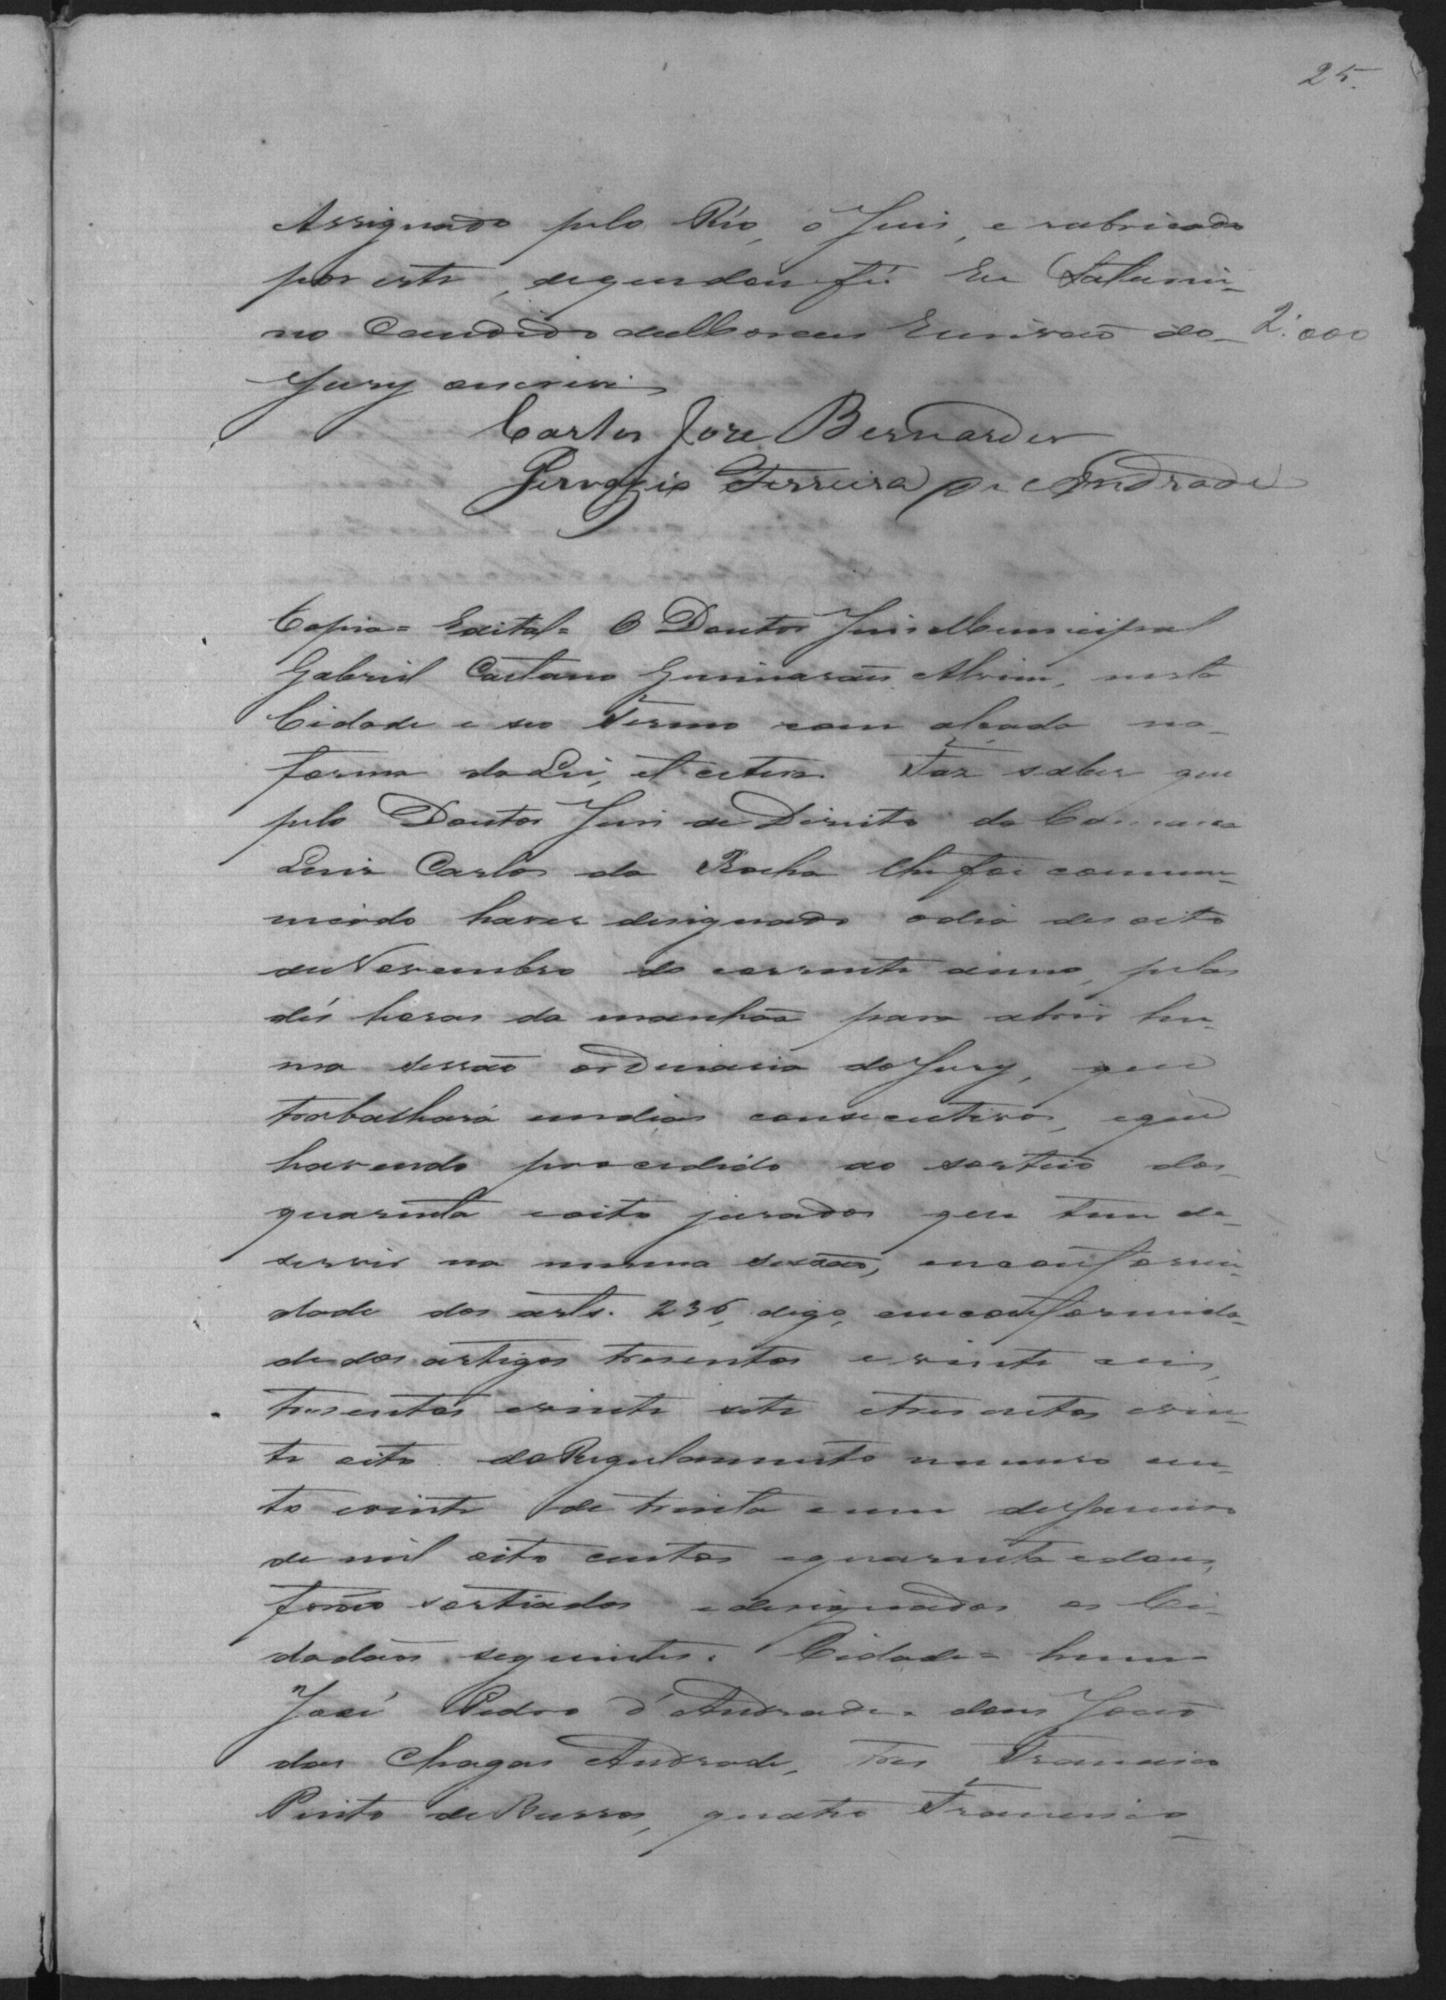 25.
Assignado pelo Réo, o Juis, e rubricado
por este, dequedou fé. Eu Saturni-
no Candido Escrivaõ do- 2:000
Jury escrevi
Carlos Jose Bernardes
Gervazio Ferreira de Andrade
Copia= Edital= O Doutor Juis Municipal
Gabriel Caetano Guimaraẽs Alvim, nesta
Cidade e seo Termo com alçada na-
forma da Lei, et cetera. Faz saber que
pelo Doutor Juis de Direito da Comarca
Luis Carlos da Rocha lhe foi commu-
nicado haver designado odia desoito
de Novembro do corrente anno, pelas
dés horas da manhãa para abrir hu-
ma sessaõ ordinaria do Jury, que
trabalhará emdias consecutivos, eque
havendo procedido ao sorteio dos-
quarenta eoito jurados que tem de-
servir na mesma sessaõ, emconformi-
dade dos arts. 236, digo, emconformida-
de dos artigos tresentos e vinte seis,
tresentos evinte sete etresentos evin-
te oito do Regulamento numero cen-
to evinte de trinta eum de Janeiro
de mil oito centos equarenta edous,
foraõ sortiados edesignados os Ci-
dadaõs seguintes. Cidade= hum-
José Pedro d'Andrade. dous Joaõ
das Chagas Andrade, tres Francisco
Pinto de Barros, quatro Francisco-